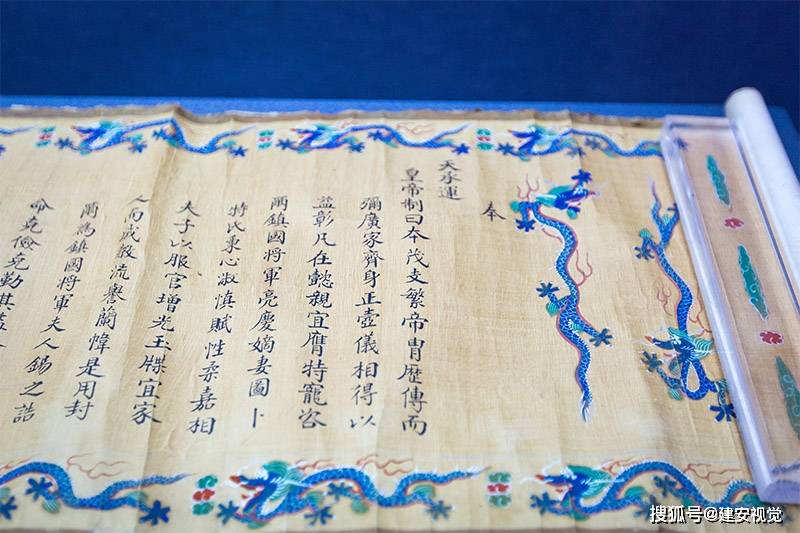 奉
天承運
皇帝制曰本茂支繁帝胄歷傳而
彌廣家齊身正壼儀相得以
益彰凡在懿親宜膺特寵咨
爾鎮國將軍亮慶嫡妻圖卜
特氏秉心淑慎賦性柔嘉相
夫子以服官增光玉牒宜家
人而成教流譽蘭幃是用封
爾為鎮國將軍夫人錫之誥
命克儉克勤其
搜狐号@建安视觉